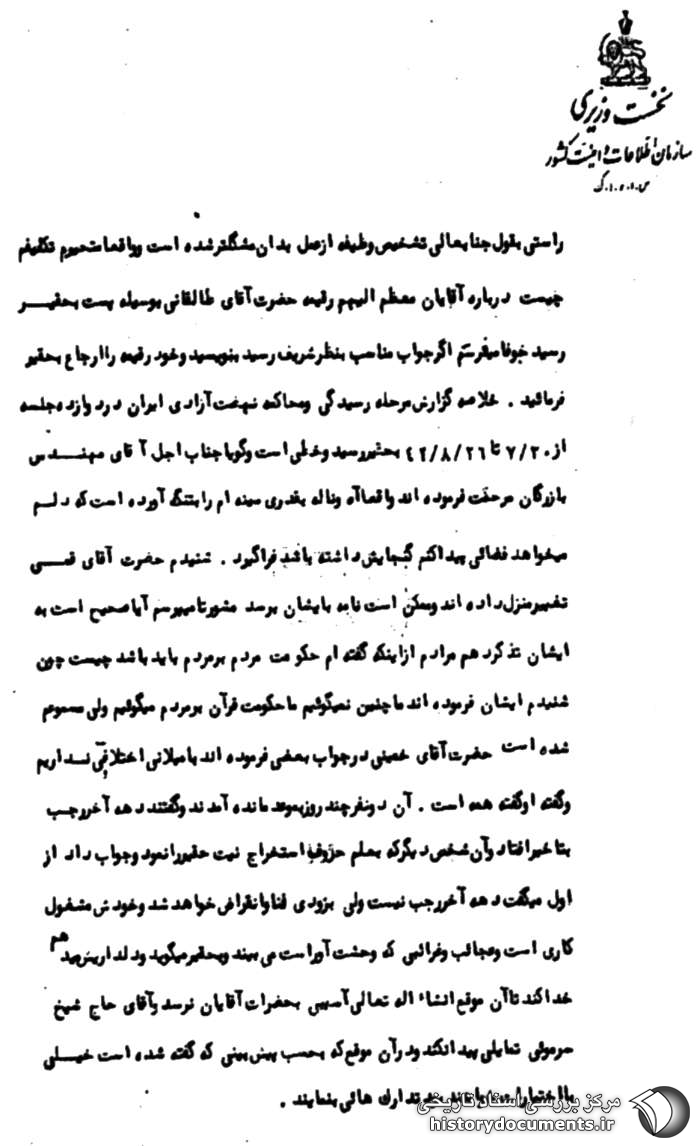 نخست وزیری
سازمان اطلاعات و امنیت کشور
راستی بقول جنابعالی تشخیص وظیفه ازعمل بدان مشگلترشده است وواقعا متحیرم تکلیفم
چیست درباره آقایان معظم الیهم رقیمه حضرت آقای طالقانی بوسیله پست بحقیر
رسید جوفا میفرستم اگرجواب مناسب بنظرشریف رسید بنویسید وخود رقیمه راارجاع بحقیر
فرمائید . خلاصه گزارش مرحله رسیدگی ومحاکمه نهضت آزادی ایران دردوازده جلسه
از ۷/۳۰ تا ۴۲/۸/۲۶ بحقیررسید وخطی است وگویا جناب اجل آقای مهندس
بازرگان مرحمت فرموده اند واقعاآه وناله بقدری سینه ام رابتنگ آورده است که دلم
میخواهد فضائی پیداکنم گنجایش داشته باشد فراگیرد . شنیدم حضرت آقای قمی
تغییرمنزل داده اند وممکن است نامه بایشان برسد مشورتا میپرسم آیا صحیح است به
ایشان تذکردهم مرادم ازاینکه گفته ام حکومت مردم برمردم باید باشد چیست چون
شنیدم ایشان فرموده اند ماچنین نمیگوئیم ماحکومت قرآن برمردم میگوئیم ولی مسموع
شده است حضرت آقای خمینی درجواب بعضی فرموده اند بامیلانی اختلافی نداریم
وگفته اوگفته همه است . آن دونفرچند روزبموعد مانده آمدند وگفتند دهه آخررجب
بتاخیرافتاد وآن شخص دیگرکه بعلم حروف استخراج نیت حقیررانمود وجواب داد از
اول میگفت دهه آخررجب نیست ولی بزودی فناوانقراض خواهدشد وخودش مشغول
کاری است وعجائب وغرائبی که وحشت آوراست می بیند وبحقیرمیگوید ودلداریش میدهم
خداکند تاآن موقع انشاء اله تعالی آسیبی بحضرات آقایان نرسد وآقای حاج شیخ
تمایلی پیدانکند ودرآن موقع که بحسب پیش بینی که گفته شده است خیلی
تدارک هائی بنمایند .
مرکز بررسی اسناد تاریخی
historydocuments.ir